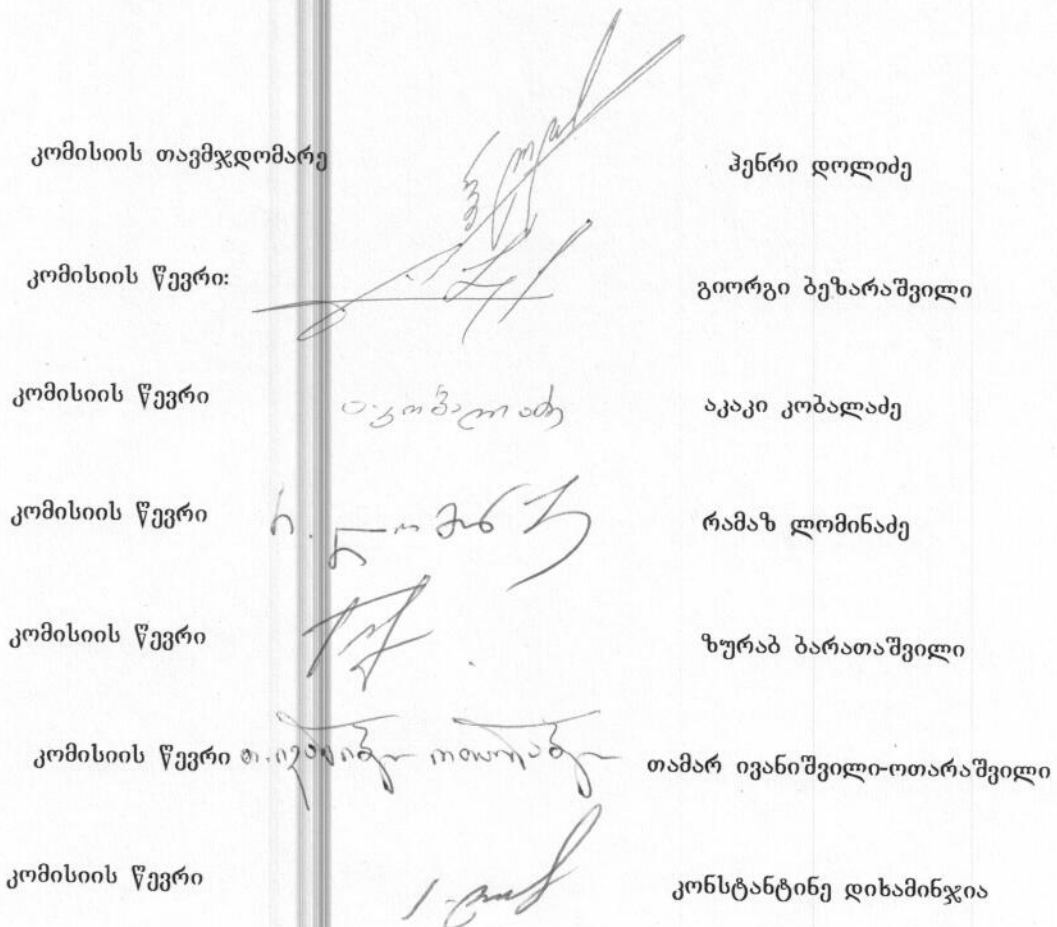 კომისიის თავმჯდომარე ჰენრი დოლიძე
კომისიის წევრი: გიორგი ბეზარაშვილი
კომისიის წევრი ა. კობალაძე აკაკი კობალაძე
კომისიის წევრი რ. ლომინაძე რამაზ ლომინაძე
კომისიის წევრი ზურაბ ბარათაშვილი
კომისიის წევრი თამარ ივანიშვილი-ოთარაშვილი
კომისიის წევრი კონსტანტინე დიხამინჯია